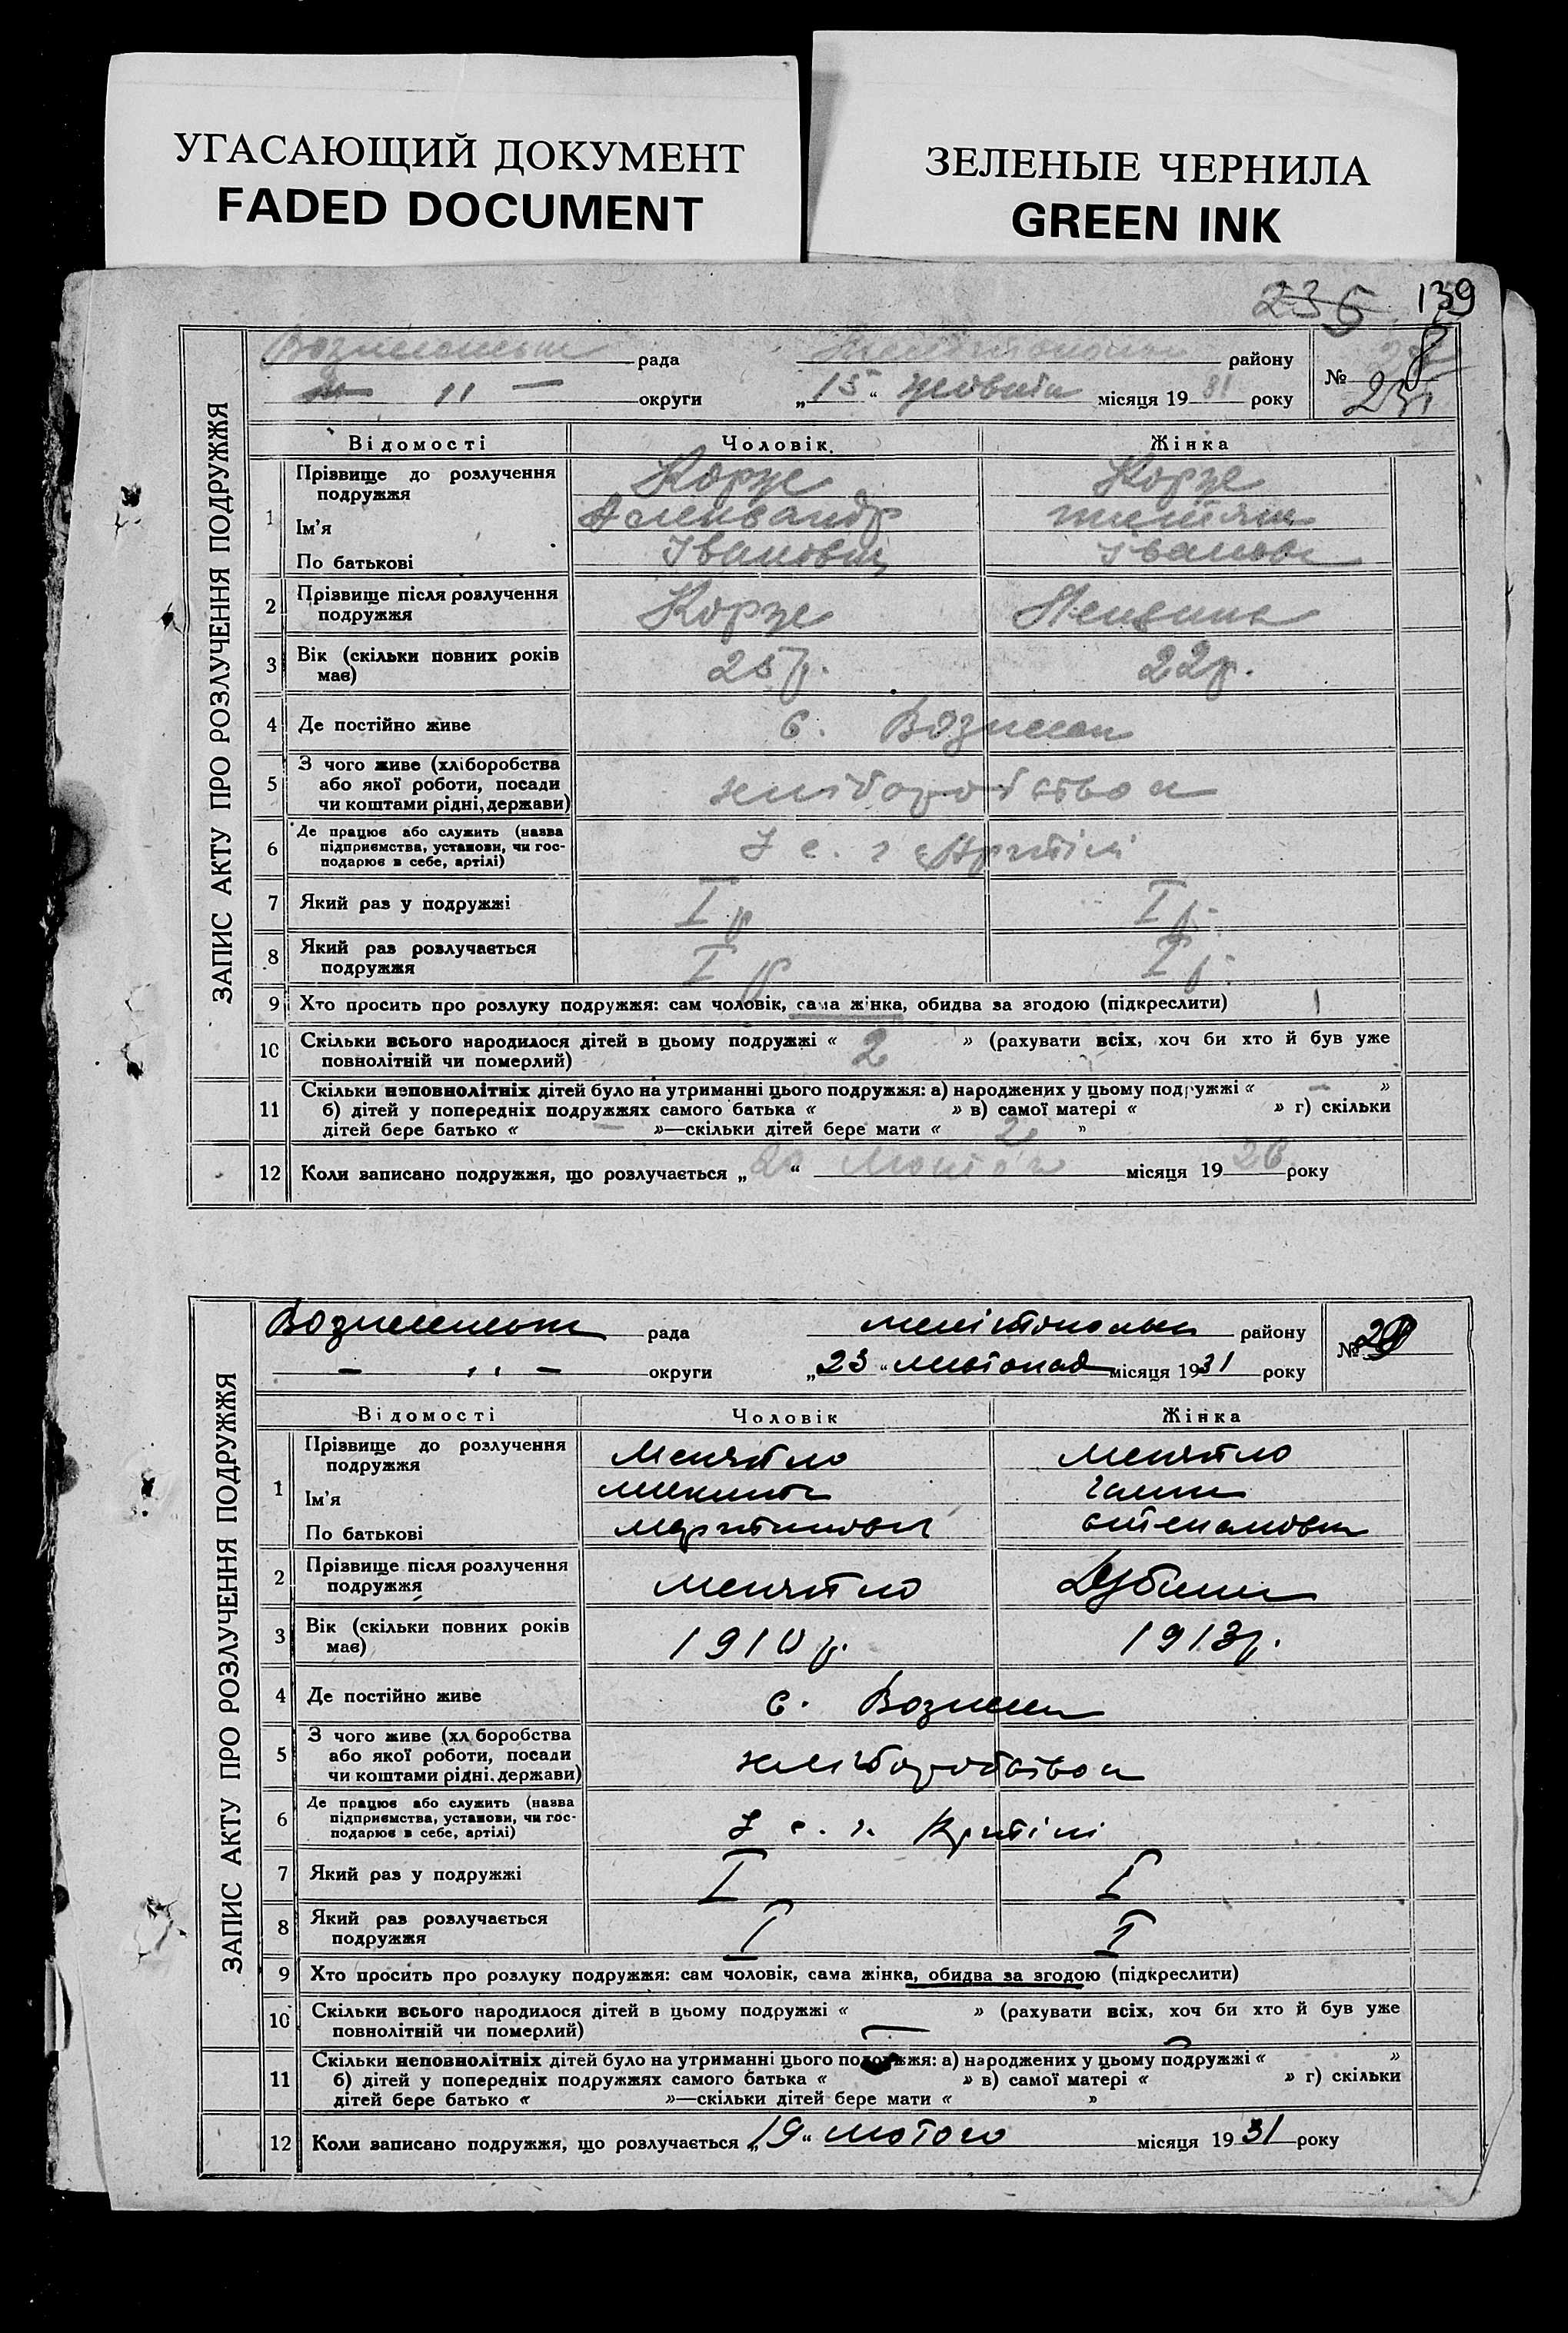 УГАСАЮЩИЙ ДОКУМЕНТ
FADED DOCUMENT
ЗЕЛЕНЫЕ ЧЕРНИЛА
GREEN INK
235 139
ЗАПИС АКТУ ПРО РОЗЛУЧЕННЯ ПОДРУЖЖЯ
рада району
округи „15“ жовтня місяця 1931 року №
Відомості Чоловік Жінка
1 Прізвище до розлучення подружжя Корже Корже
Ім'я Александр
По батькові Іванович Іванов
2 Прізвище після розлучення подружжя Корже
3 Вік (скільки повних років має) 25р. 22р.
4 Де постійно живе с. Вознесен
5 З чого живе (хліборобства
або якої роботи, посади
чи коштами рідні, держави) хліборобством
6 Де працює або служить (назва
підприємства, установи, чи гос-
подарює в себе, артілі) У с. г Артілі
7 Який раз у подружжі I р I р.
8 Який раз розлучається подружжя I р I р.
9 Хто просить про розлуку подружжя: сам чоловік, сама жінка, обидва за згодою (підкреслити)
10 Скільки всього народилося дітей в цьому подружжі « 2 » (рахувати всіх, хоч би хто й був уже
повнолітній чи померлий)
11 Скільки неповнолітніх дітей було на утриманні цього подружжя: а) народжених у цьому подружжі « — »
б) дітей у попередніх подружжях самого батька « » в) самої матері « » г) скільки
дітей бере батько « — »—скільки дітей бере мати « 2 »
12 Коли записано подружжя, що розлучається „20“ місяця 1926 року
ЗАПИС АКТУ ПРО РОЗЛУЧЕННЯ ПОДРУЖЖЯ
Вознесенськ рада мелітопольськ району
— ,, — округи „23“ листопад місяця 1931 року №
Відомості Чоловік Жінка
1 Прізвище до розлучення подружжя Менятло Менятло
Ім'я Микита Ганна
По батькові Мартинови степановна
2 Прізвище після розлучення подружжя Менятло Дубина
3 Вік (скільки повних років має) 1910 р. 1913р.
4 Де постійно живе с. Вознесен
5 З чого живе (хліборобства
або якої роботи, посади
чи коштами рідні, держави) хліборобством
6 Де працює або служить (назва
підприємства, установи, чи гос-
подарює в себе, артілі) У с. г. Артілі
7 Який раз у подружжі I I
8 Який раз розлучається подружжя I I
9 Хто просить про розлуку подружжя: сам чоловік, сама жінка, обидва за згодою (підкреслити)
10 Скільки всього народилося дітей в цьому подружжі « — » (рахувати всіх, хоч би хто й був уже
повнолітній чи померлий)
11 Скільки неповнолітніх дітей було на утриманні цього подружжя: а) народжених у цьому подружжі « »
б) дітей у попередніх подружжях самого батька « » в) самої матері « » г) скільки
дітей бере батько « »—скільки дітей бере мати « »
12 Коли записано подружжя, що розлучається „19“ лютого місяця 1931 року